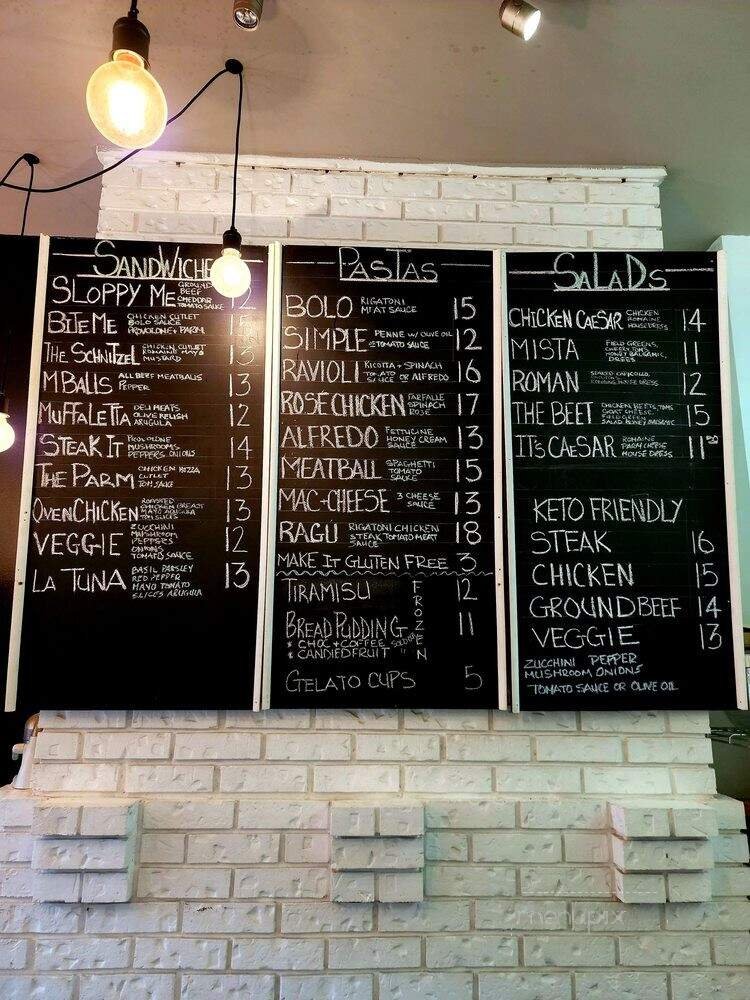 SANDWICHE
SLOPPY ME GROUND BEEF CHEDDAR TOMATO SAUCE 12
BITE ME CHICKEN CUTLET BOLO SAUCE PROVOLONE + PARM
THE SCHNITZEL CHICKEN CUTLET ROMAINE MAYO MUSTARD 13
M BALLS ALL BEEF MEATBALLS PEPPER 13
MUFFALETTA DELI MEATS OLIVE RELISH ARUGULA 12
STEAK IT PROVOLONE MUSHROOMS PEPPERS ONIONS 14
THE PARM CHICKEN MOZZA CUTLET TOM SAUCE 13
OVEN CHICKEN ROASTED CHICKEN BREAST MAYO ARUGULA 13
VEGGIE ZUCCHINI MUSHROOM PEPPERS ONIONS TOMATO SAUCE 12
LA TUNA BASIL PARSLEY RED PEPPER MAYO TOMATO SLICES ARUGULA 13
PASTAS
BOLO RIGATONI MEAT SAUCE 15
SIMPLE PENNE W/ OLIVE OIL TOMATO SAUCE 12
RAVIOLI RICOTTA + SPINACH TOMATO SAUCE OR ALFREDO 16
ROSÉ CHICKEN FARFALLE SPINACH ROSÉ 17
ALFREDO FETTUCINE HONEY CREAM SAUCE 13
MEATBALL SPAGHETTI TOMATO SAUCE 15
MAC-CHEESE 3 CHEESE SAUCE 13
RAGÙ RIGATONI CHICKEN STEAK TOMATO MEAT SAUCE 18
MAKE IT GLUTEN FREE 3
TIRAMISU 12
BREAD PUDDING 11
* CHOC + COFFEE
* CANDIED FRUIT
FROZEN
GELATO CUPS 5
SALADS
CHICKEN CAESAR CHICKEN ROMAINE HOUSE DRESS 14
MISTA FIELD GREENS, CHERRY TOMS HONEY BALSAMIC, DRESS 11
ROMAN HOUSE DRESS 12
THE BEET CHICKEN BEETS, TOMS GOAT CHEESE, FIELD GREENS HONEY BALSAMIC 15
IT'S CAESAR ROMAINE PARM CHEESE HOUSE DRESS 11
KETO FRIENDLY
STEAK 16
CHICKEN 15
GROUND BEEF 14
VEGGIE 13
ZUCCHINI PEPPER
MUSHROOM ONIONS
TOMATO SAUCE OR OLIVE OIL
menupix